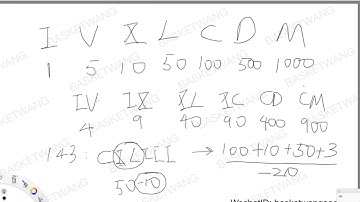 I V X L C D M
1 5 10 50 100 500 1000
IV IX XL XC CD CM
4 9 40 90 400 900
143: CXLIII → 100+10+50+3
50-10 -20
BASKETWANG